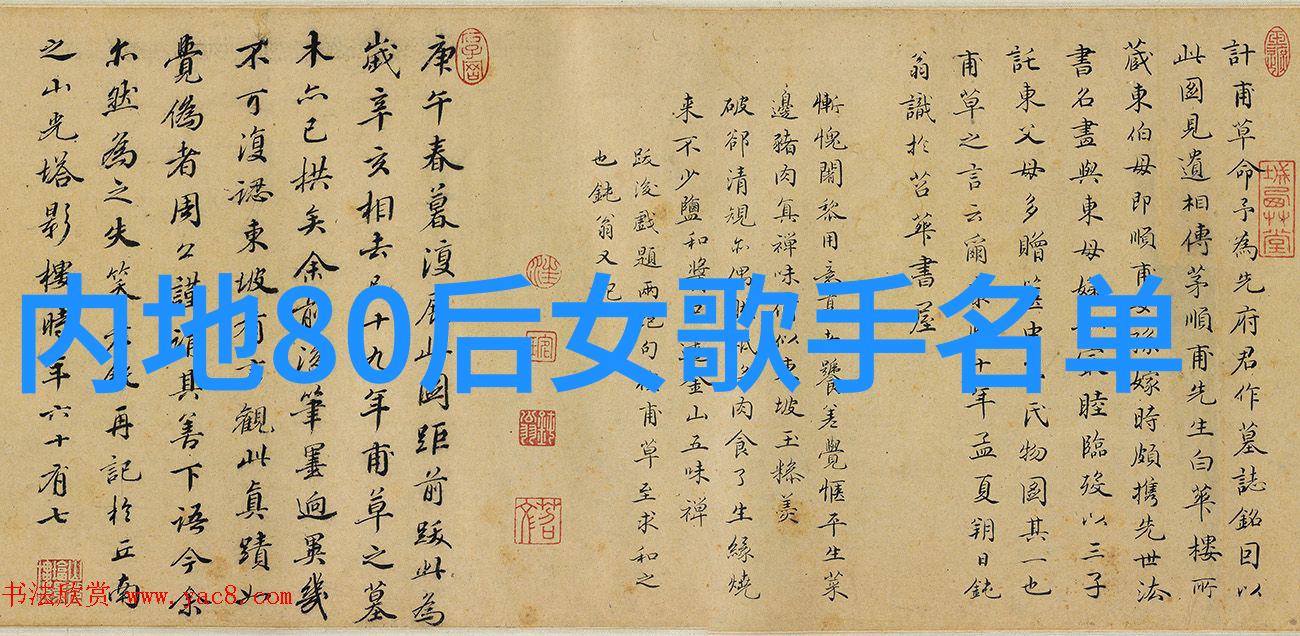 計甫草命予為先府君作墓誌銘因以
此圖見遺相傳茅順甫先生白華樓所
蔵東伯母即順甫女孫嫁時頗攜先世法
書名畫與東母妯睦臨歿以三子
託東父母多贈篋中氏物圖其一也
甫草之言云爾十年孟夏朔日鈍
翁識於苕華書屋
慚愧闍黎用意饕差覺愜平生菜
邊豬肉真禪味何似東坡玉糝羹
破卻清規亦偶肉食了生緣燒
来不少鹽和醬金山五味禪
跋後戲題兩絕句甫草至求和之
也鈍翁又記
庚午春暮復展此圖距前跋此為
歲辛亥相去已十九年甫草之墓
木亦已拱矣余前後筆墨迥異幾
不可復認東坡有言觀此真蹟如
覺偽者周公謹謂其善下語今余
亦然為之失笑再記於丘南
之山光塔影樓時年六十有七
内地80后女歌手名单
书法欣赏 www.yac8.com